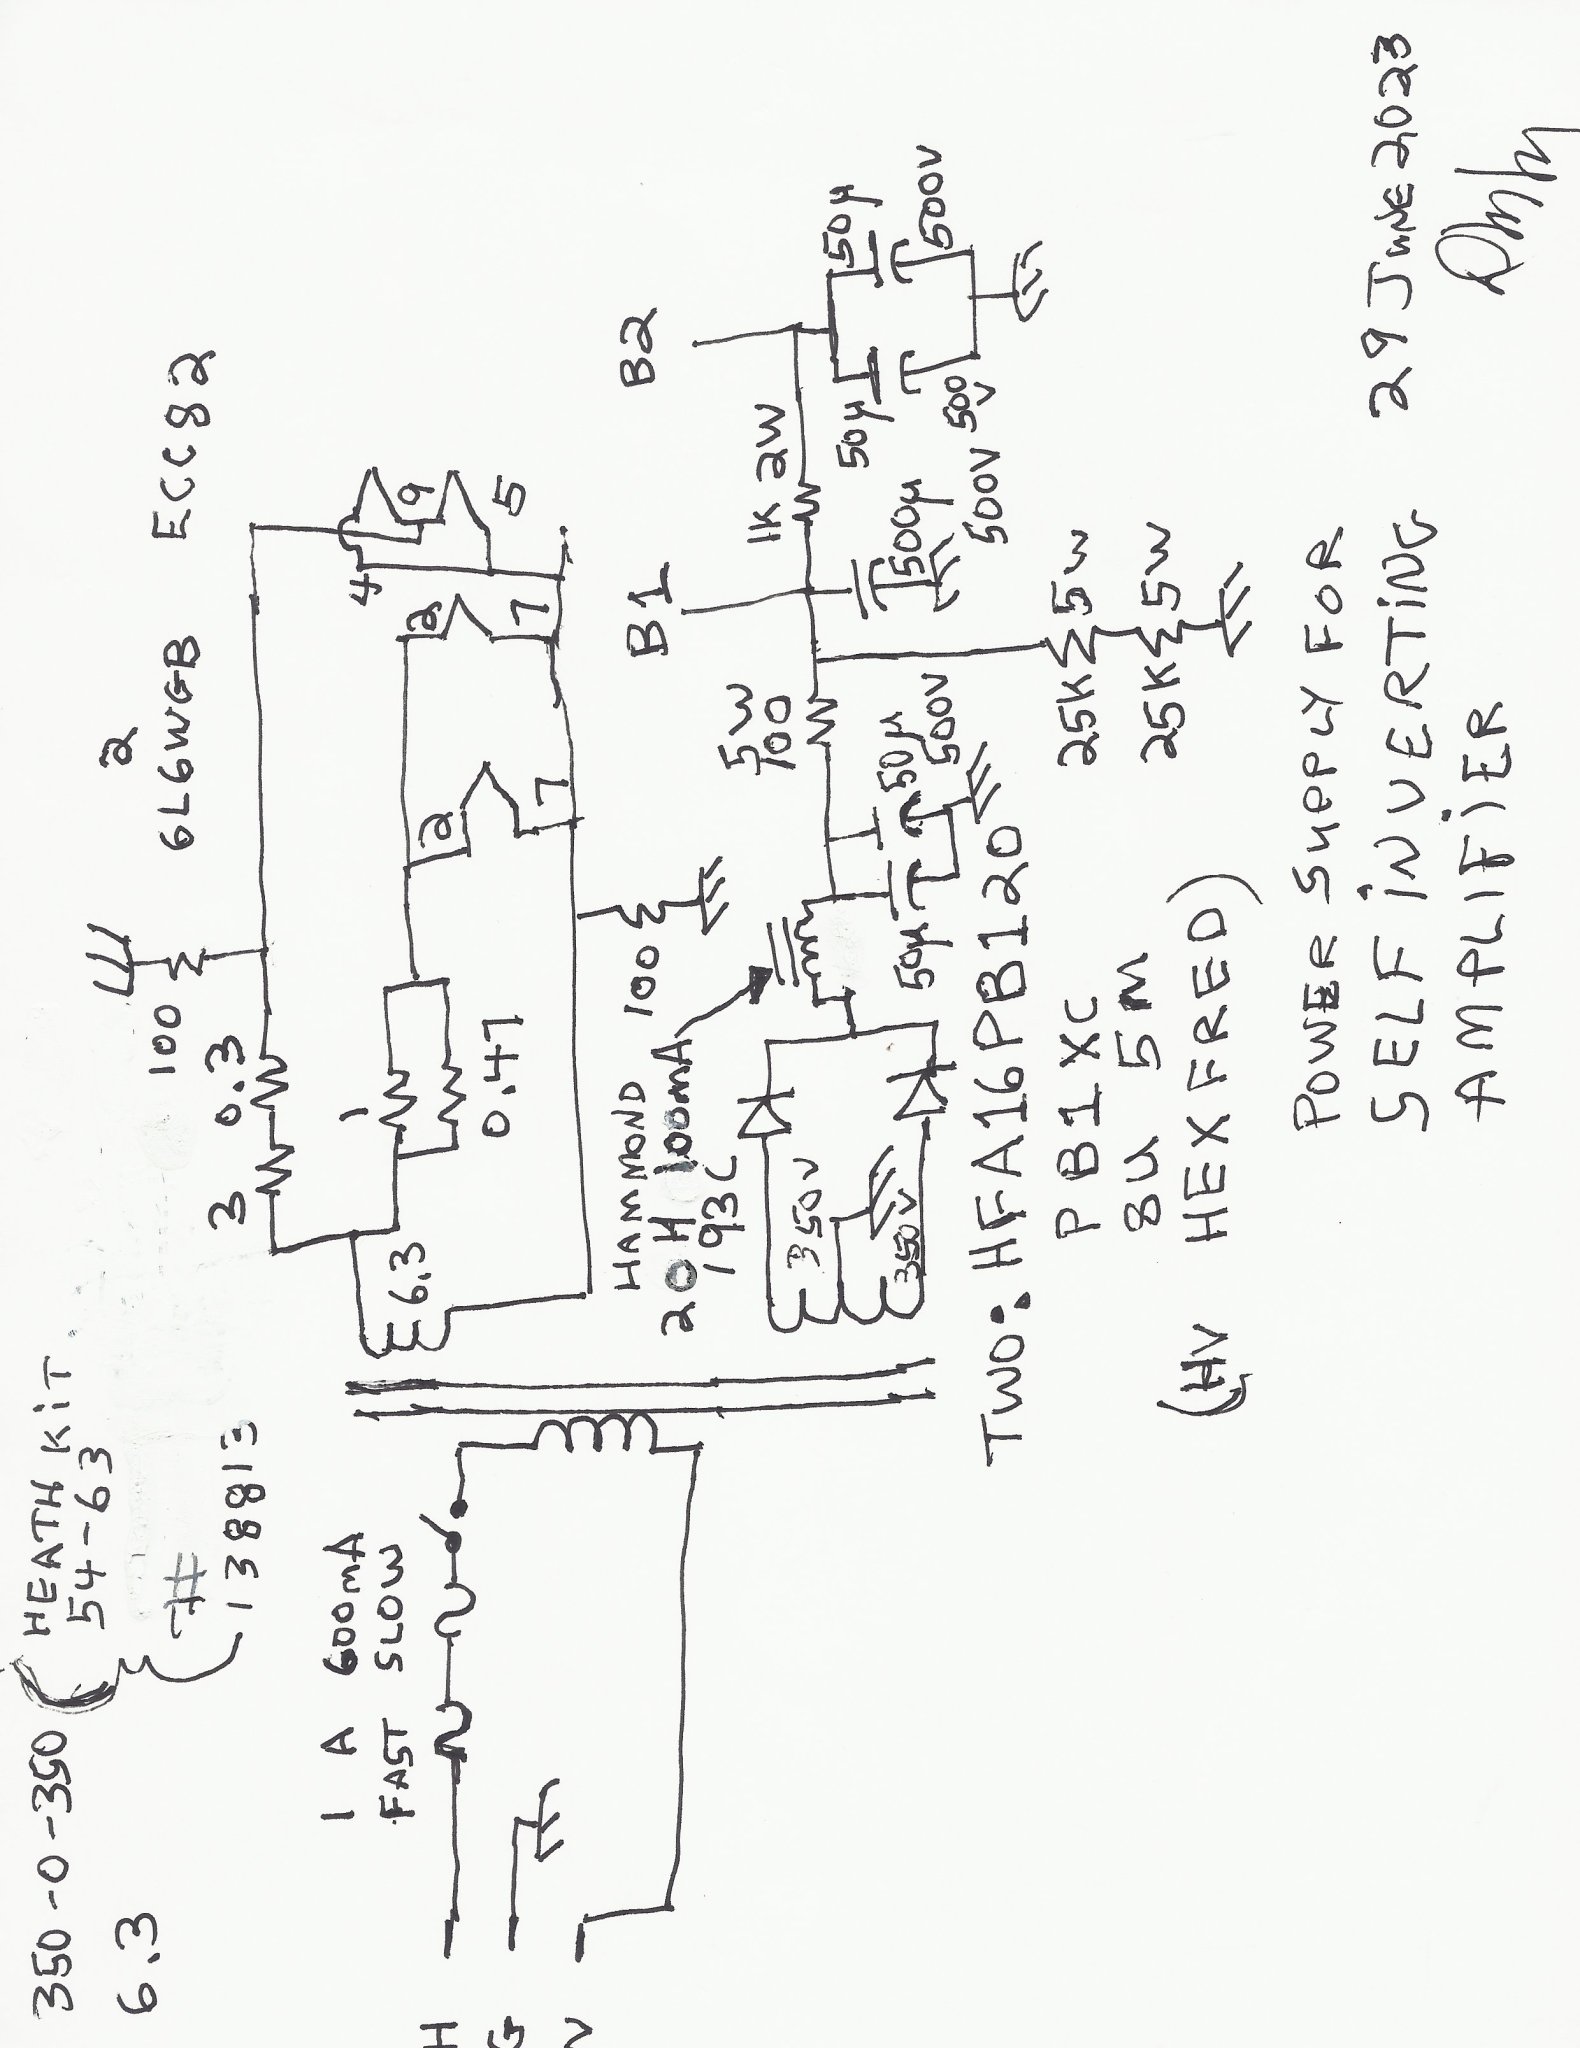 350-0-350
HEATH KIT
54-63
6.3
#
138813
1 A 600mA
FAST SLOW
H
G
100
2
6L6WGB
ECC82
3
0.3
1
0.47
6.3
2
7
2
7
4
9
5
100
HAMMOND
20H 100mA
193C
350V
350V
50µ
50µ
500V
5W
100
B1
1K 2W
500µ
500V
B2
50µ
500V
50µ
500V
25K 5W
25K 5W
TWO: HFA16PB120
PB1XC
8U 5M
(HV HEXFRED)
POWER SUPPLY FOR
SELF INVERTING
AMPLIFIER
29 JUNE 2023